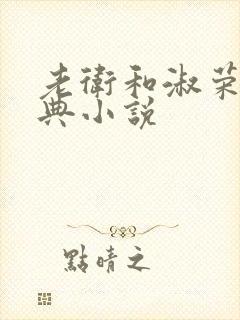 老衛和淑荣
典小說
點晴之